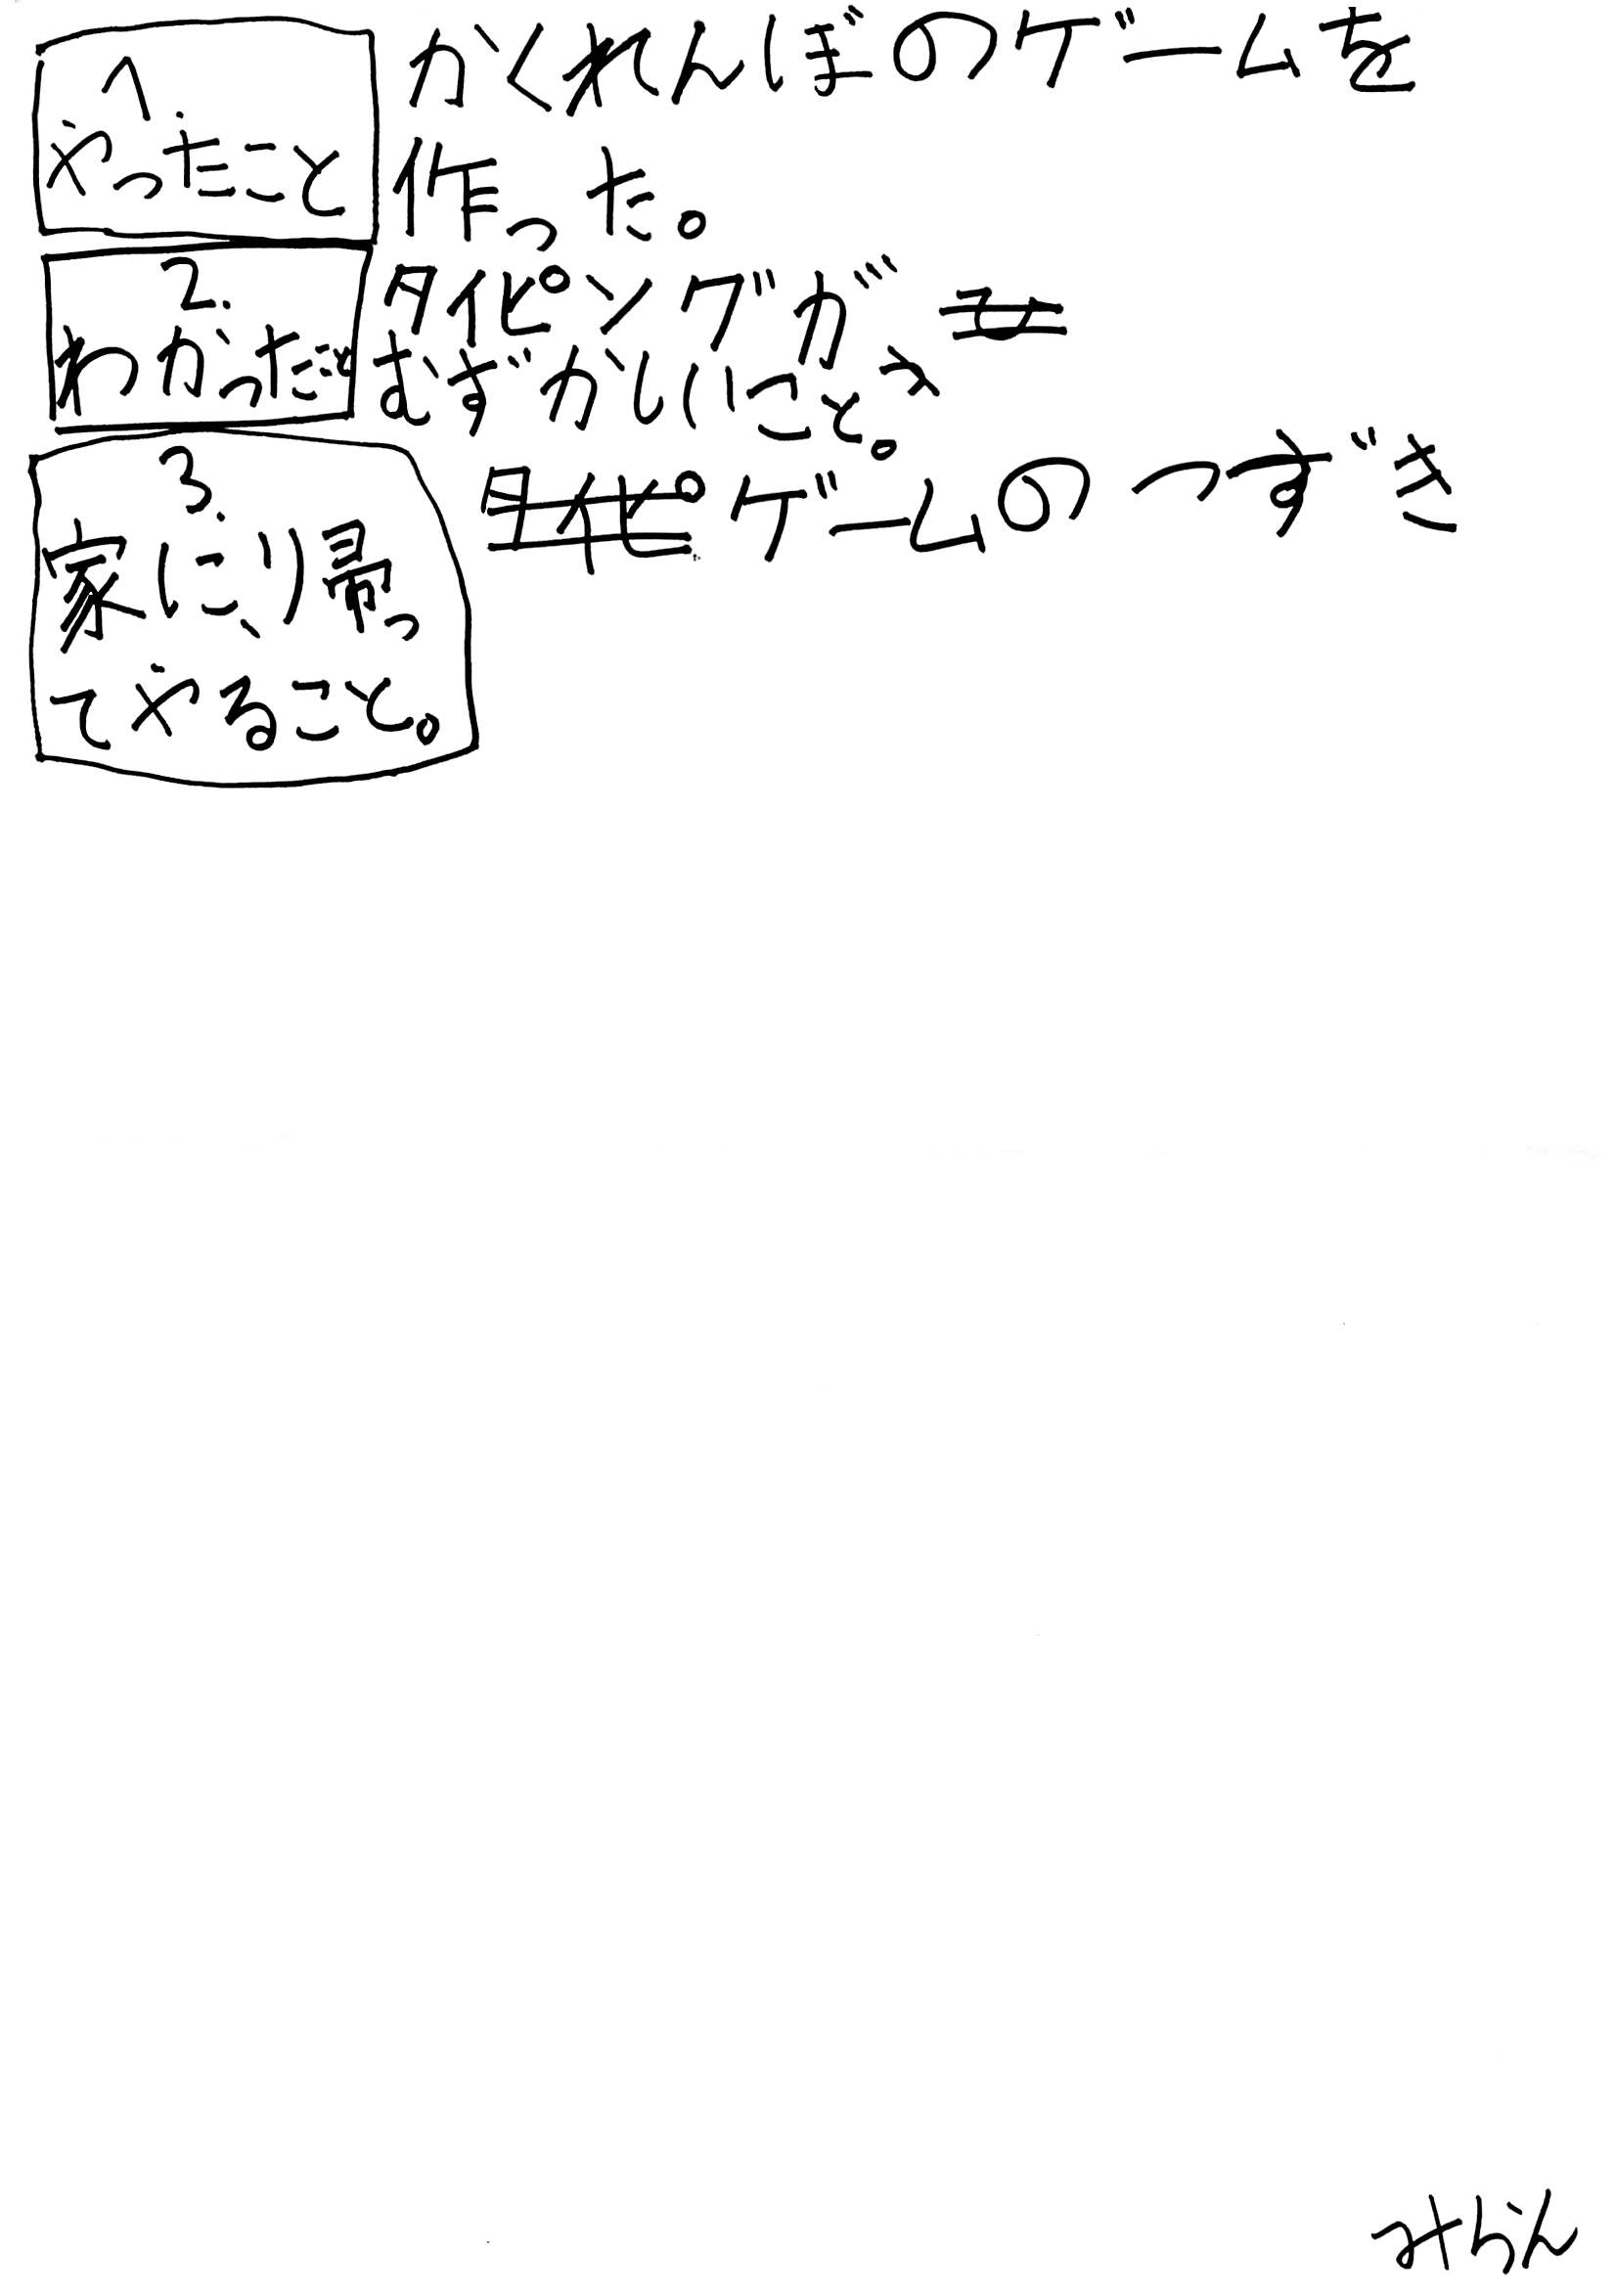 1.
やったこと
かくれんぼのゲームを
作った。
2.
わかったこと
タイピングが
むずかしいこと。
3.
家に帰っ
てやること。
ゲームのつずき
みらん